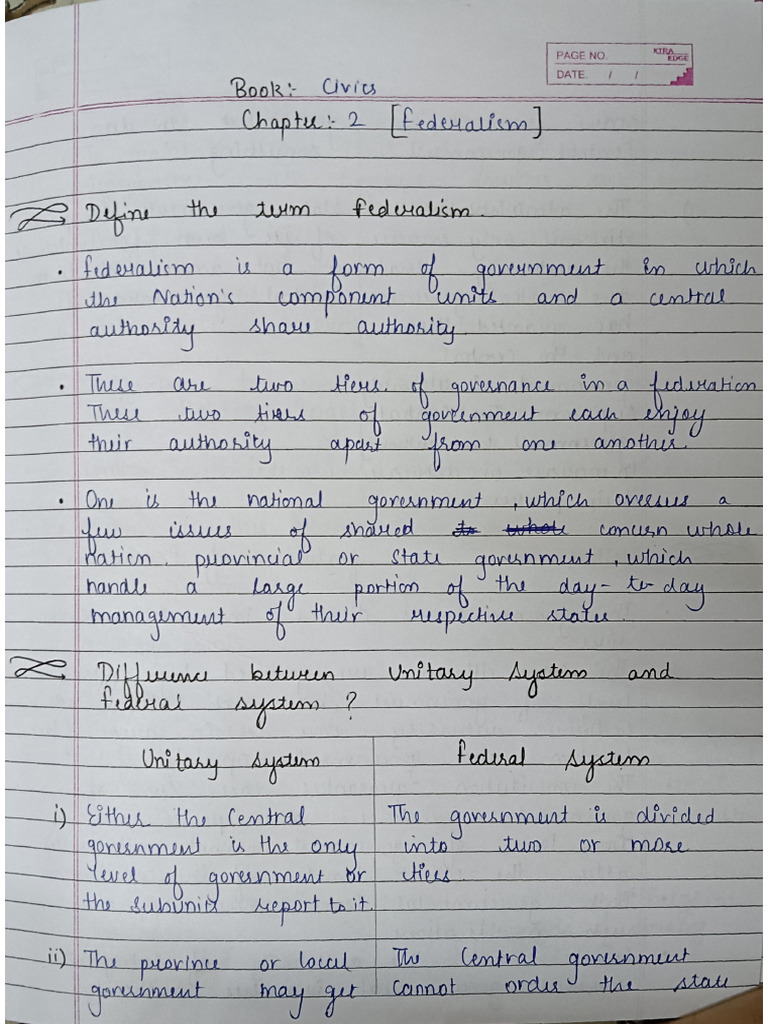 PAGE NO.
XTRA EDGE
DATE. / /
Book:- Civics
Chapter:- 2 [Federalism]
Define the term federalism.
• Federalism is a form of government in which
the Nation's component units and a central
authority share authority.
• These are two tiers of governance in a federation
These two tiers of government each enjoy
their authority apart from one another.
• One is the national government, which oversees a
few issues of shared concern whole
nation. provincial or state government, which
handle a large portion of the day-to-day
management of their respective states.
Difference between Unitary system and
federal system?
Unitary system
Federal system
i) Either the Central
government is the only
level of government or
the subunits report to it.
The government is divided
into two or more
tiers.
ii) The province or local
government may get
The Central government
cannot order the state